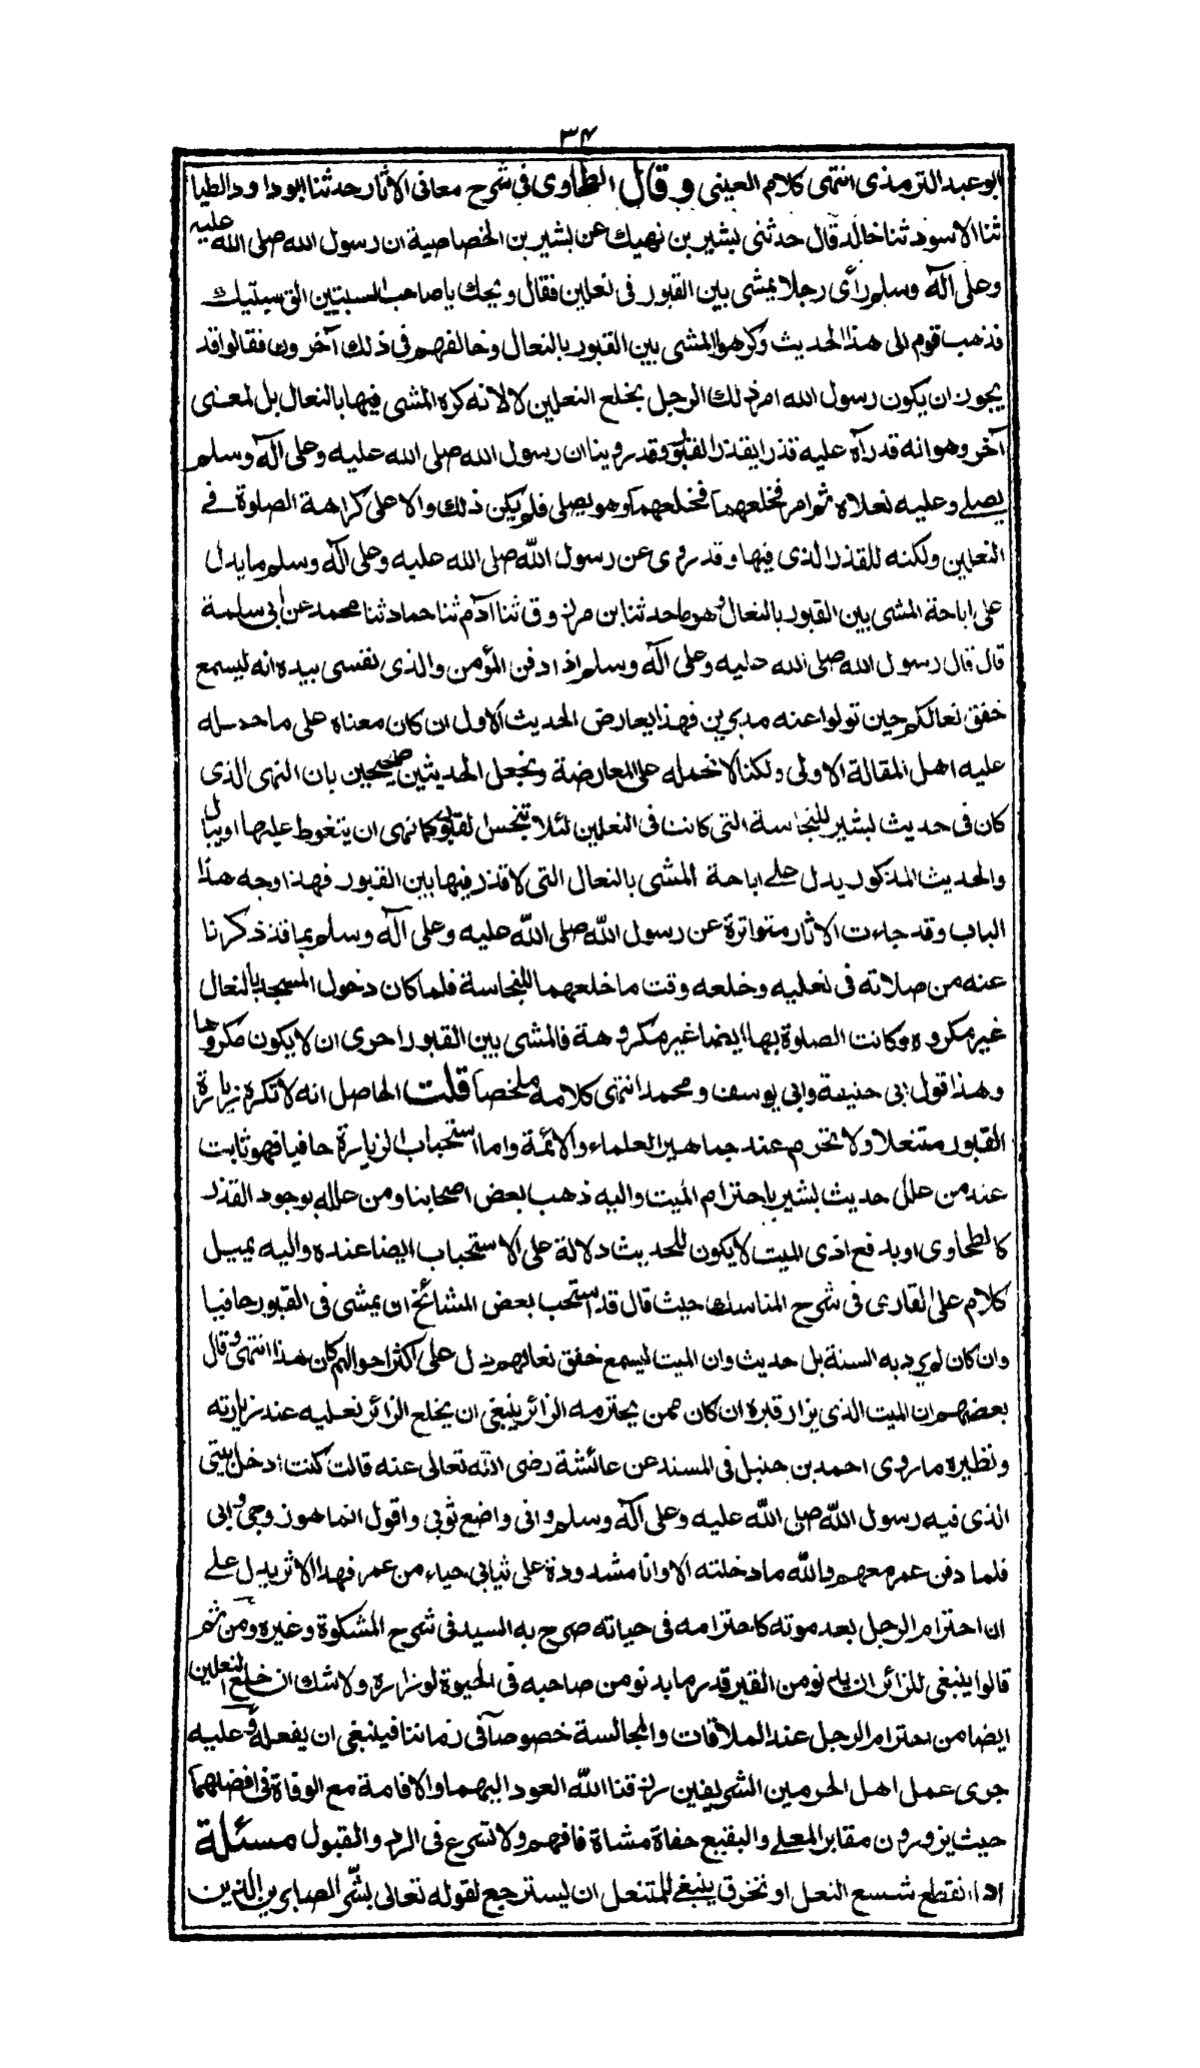 ٣٤
ابو عبد الترمذى انتهى كلام العينى وقال الطحاوى فى شرح معانى الاثار حدثنا ابو داود الطيا
ثنا الاسود ثنا خالد قال حدثنى بشير بن نهيك عن بشير بن الخصاصية ان رسول الله صلى الله عليه
وعلى آله وسلم رأى رجلا يمشى بين القبور فى نعلين فقال ويحك يا صاحب السبتيين الق سبتيك
فذهب قوم الى هذا الحديث وكرهوا المشى بين القبور بالنعال وخالفهم فى ذلك آخرون فقالوا قد
يجوز ان يكون رسول الله امر ذلك الرجل بخلع النعلين لا لانه كره المشى فيها بالنعال بل لمعنى
آخر وهو انه قد رآه عليه قذرا يقذر القبور وقد روينا ان رسول الله صلى الله عليه وعلى آله وسلم
يصلى وعليه نعلاه ثم امر فخلعهما فخلعهما وهو يصلى فلم يكن ذلك والا على كراهة الصلوة فى
النعلين ولكنه للقذر الذى فيها وقد روى عن رسول الله صلى الله عليه وعلى آله وسلم ما يدل
على اباحة المشى بين القبور بالنعال وهو ما حدثنا بن مرزوق ثنا آدم ثنا حماد ثنا محمد عن ابى سلمة
قال قال رسول الله صلى الله عليه وعلى آله وسلم اذا دفن المؤمن والذى نفسى بيده انه ليسمع
خفق نعالكم حين تولوا عنه مدبرين فهذا يعارض الحديث الاول ان كان معناه على ما حمله
عليه اهل المقالة الاولى ولكنا لا نحمله على المعارضة ونجعل الحديثين صحيحين بان النهى الذى
كان فى حديث بشير للنجاسة التى كانت فى النعلين لئلا تنجس القبور كما نهى ان يتغوط عليها او يبال
والحديث المذكور يدل على اباحة المشى بالنعال التى لا قذر فيها بين القبور فهذا وجه هذا
الباب وقد جاءت الاثار متواترة عن رسول الله صلى الله عليه وعلى آله وسلم بما قد ذكرنا
عنه من صلاته فى نعليه وخلعه وقت ما خلعهما للنجاسة فلما كان دخول المسجد بالنعال
غير مكروه وكانت الصلوة بها ايضا غير مكروهة فالمشى بين القبور احرى ان لا يكون مكروها
وهذا قول ابى حنيفة وابى يوسف ومحمد انتهى كلامه ملخصا قلت الحاصل انه لا تكره زيارة
القبور متنعلا ولا تحرم عند جماهير العلماء والائمة واما استحباب الزيارة حافيا فهو ثابت
عند من علل حديث بشير باحترام الميت واليه ذهب بعض اصحابنا ومن علله بوجود القذر
كالطحاوى او بدفع اذى الميت لا يكون للحديث دلالة على الاستحباب ايضا عنده واليه يميل
كلام على القارى فى شرح المناسك حيث قال قد استحب بعض المشائخ ان يمشى فى القبور حافيا
وان كان لم يرد به السنة بل حديث وان الميت ليسمع خفق نعالهم دل على اكثر احوالهم كان هذا انتهى وقال
بعضهم ان الميت الذى يزار قبره ان كان ممن يحترمه الزائر ينبغى ان يخلع الزائر نعليه عند زيارته
ونظيره ما روى احمد بن حنبل فى المسند عن عائشة رضى الله تعالى عنه قالت كنت ادخل بيتى
الذى فيه رسول الله صلى الله عليه وعلى آله وسلم وانى واضع ثوبى واقول انما هو زوجى وابى
فلما دفن عمر معهم والله ما دخلته الا وانا مشدودة على ثيابى حياء من عمر فهذا الاثر يدل على
ان احترام الرجل بعد موته كاحترامه فى حياته صرح به السيد فى شرح المشكوة وغيره ومن ثم
قالوا ينبغى للزائر ان يدنو من القبر قدر ما يدنو من صاحبه فى الحيوة لو زاره ولا شك ان خلع النعلين
ايضا من احترام الرجل عند الملاقات والمجالسة خصوصا فى زماننا فينبغى ان يفعله وعليه
جرى عمل اهل الحرمين الشريفين رزقنا الله العود اليهما والاقامة مع الوفاة فى افضلهما
حيث يزورون مقابر المعلى والبقيع حفاة مشاة فافهم ولا تسرع فى الرد والقبول مسئلة
اذا انقطع شسع النعل او تخرق ينبغى للمتنعل ان يسترجع لقوله تعالى بشر الصابرين الذين